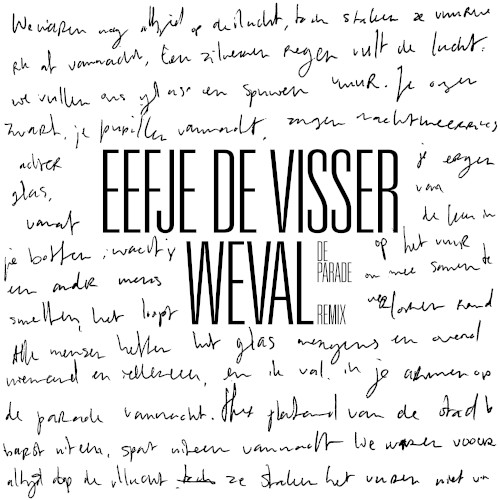 We waren nog altijd op de vlucht, toch staken ze vuurwe
rk af vannacht, Een zilveren regen vult de lucht.
we vullen ons glas en spuwen vuur. Je ogen
zwart, je pupillen vannacht, zongen nachtmerries
achter je ogen
glas, van
vanaf de leun in
EEFJE DE VISSER
je botten, wacht jy op het vuur
WEVAL DE PARADE REMIX
een ander mens om mee samen te
smelten, het loopt rand
Alle mensen heffen het glas nergens en overal
niemand en iedereen, en ik val in je armen op
de parade vannacht. Het plafond van de stad b
barst uiteen, spat uiteen vannacht We waren voor
altijd op de vlucht ze staken het vuren niet va